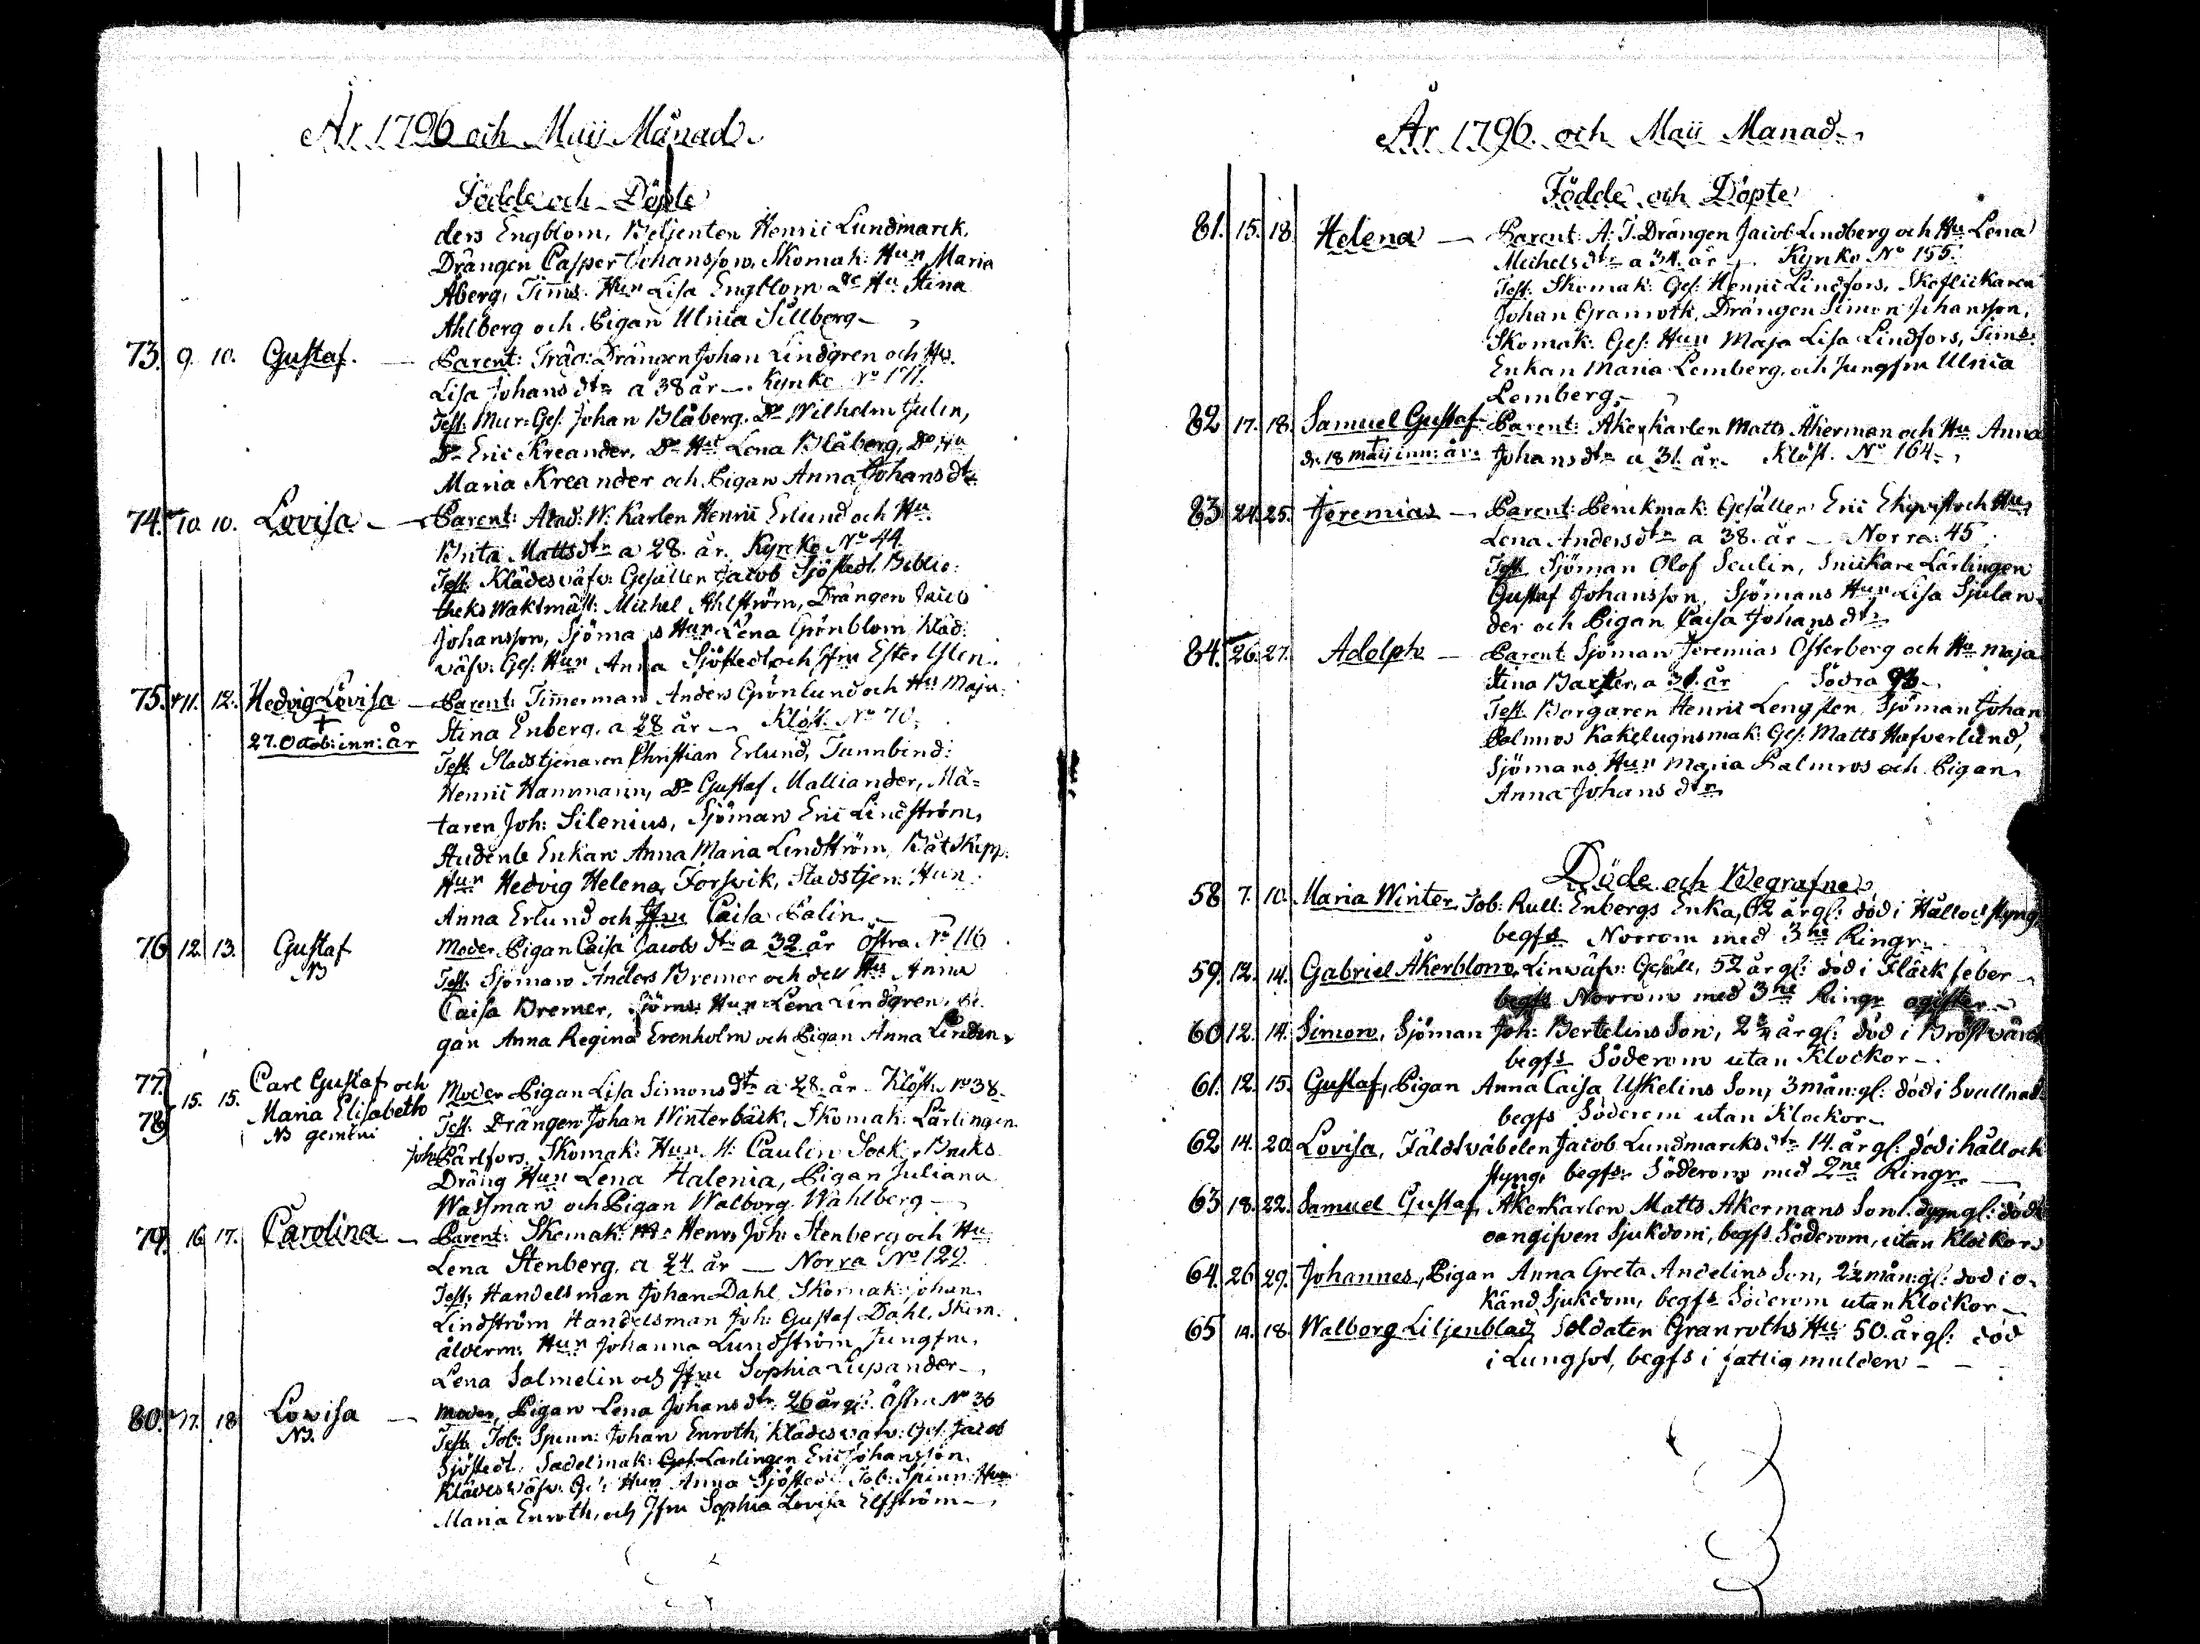 År 1796 och Maij Månad
Födde och Döpte
ders Engblom, Betjenten Henric Lundmarck,
Drängen Casper Johansson, Skomak: Hun Maria
Åberg, Timms. Hun Lisa Engblom Do Hu Stina
Ahlberg och Pigan Ulrica Sillberg
73. 9. 10. Gustaf. — Parent: Drängen Johan Lindgren och Hu.
Lisa Johansdtr a 38 år — Kyrko No 171.
Test: Mur: Ges: Johan Blåberg. Do Wilhelm Julin,
Do Eric Kreander, Do Hu Lena Blåberg, Do Hu
Maria Kreander och Pigan Anna Johansdtr
74. 10. 10. Lovisa — Parent: Acad: W: Karlen Henric Erlund och Hu
Brita Mattsdtr a 28. år. Kyrko No 44.
Test: Klädesväfv: Gesällen Jacob Sjöstedt. Biblio:
theks Waktmäst: Michel Ahlström, Drängen Jacob
Johansson, Sjömans Hun Lena Grönblom Kläd:
väfv: Ges: Hun Anna Sjöstedt och Jfru Ester
75. 11. 12. Hedvig Lovisa — Parent: Timmerman Anders Grönlund och Hu Maja
†
27. Octob: inn: år
Stina Enberg, a 28 år — Klöst. No 70.
Test: Stadstjenaren Christian Erlund, Tunnbind:
Henric Hammarin, Do Gustaf Malliander, Mä=
taren Joh: Silenius, Sjöman Eric Lindström,
Studente Enkan Anna Maria Lindström, Båtskipp:
Hun Hedvig Helena Forsvik, Stadstjen: Hun
Anna Erlund och Jfru Caisa Palin
76. 12. 13. Gustaf
NB
Moder Pigan Caisa Jacobsdtr a 32 år Östra No 116
Test: Sjöman Anders Bremer och dess Hu Anna
Caisa Bremer, Sjöms: Hun Lena Lindgren, Pi
gan Anna Regina Erenholm och Pigan Anna Linden
77. 78. 15. 15. Carl Gustaf och
Maria Elisabeth
NB gemini
Moder Pigan Lisa Simonsdtr a 28. år Klöst. No 38.
Test: Drängen Johan Winterbäck, Skomak: Lärlingen
Joh: Parlfors, Skomak: Hun M: Paulin Sock: Bruks
Dräng Hun Lena Halenia, Pigan Juliana
Wassman och Pigan Walborg Wahlberg
79. 16. 17. Carolina — Parent: Skomak: Henr: Joh: Stenberg och Hu
Lena Stenberg, a 24. år — Norra No 129.
Test: Handelsman Johan Dahl, Skomak: Johan
Lindström Handelsman Joh: Gustaf Dahl, Skom.
ålderm: Hun Johanna Lundström Jungfru
Lena Salmelin och Jfru Sophia Lupander
80. 17. 18 Lovisa —
NB.
Moder, Pigan Lena Johansdtr. 26 år gl: Östra No 36
Test. Tob: Spinn: Johan Enroth, Klädesväfv: Ges: Jacob
Sjöstedt, Sadelmak: Lärlingen Eric Johansson.
Klädesväfv: Ges: Hun Anna Sjöstedt Tob: Spinn: Hun
Maria Enroth, och Jfru Sophia Lovisa Elfström
År 1796. och Maii Manad
Födde och Döpte
81. 15. 18. Helena — Parent: A: T: Drängen Jacob Lindberg och Hu Lena
Michelsdtr a 34. år — Kyrko No 155.
Test: Skomak: Ges: Henric Lindfors, Skoflickaren
Johan Granroth, Drängen Simon Johansson,
Skomak: Ges: Hun Maja Lisa Lindfors, Tims:
Enkan Maria Lemberg, och Jungfru Ulrica
Lemberg
82 17. 18. Samuel Gustaf Parent: Åkerkarlen Matts Åkerman och Hu Anna
†
d: 18 Maij inn: år. Johansdtr a 31. år. Klöst. No 164.
83 24. 25. Jeremias — Parent: Perukmak: Gesällen Eric Ekqvist och Hu
Lena Andersdtr a 38. år — Norra: 45.
Test. Sjöman Olof Seulin, Snickare Lärlingen
Gustaf Johansson, Sjömans Hun Lisa Sjulan
der och Pigan Caisa Johansdtr
84. 26. 27. Adolph — Parent Sjöman Jeremias Österberg och Hu Maja
Stina Baxter, a 31. år Södra 93
Test. Borgaren Henric Lengsten, Sjöman Johan
Palmros Kakelugnsmak: Ges: Matts Hafverlund,
Sjömans Hun Maria Palmros och Pigan
Anna Johansdtr
Döde och Begrafne
58 7. 10. Maria Winter Tob: Rull: Enbergs Enka, 62 år gl: död i Håll och styng
begfs Norrom med 3ne Ringr.
59. 12. 14. Gabriel Åkerblom, Linväfv: Gesäll, 52 år gl: död i Fläckfeber
begfs Norrom med 3ne Ringr ogifter
60 12. 14. Simon, Sjöman Joh: Bertelins Son, 2 ¾ år gl: död i Bröstvärck
begfs Söderom utan Klockor —
61. 12. 15. Gustaf, Pigan Anna Caisa Uskelins Son, 3 mån: gl: död i Svullnad
begfs Söderom utan Klockor —
62 14. 20 Lovisa, Fältväbelen Jacob Lundmarcks dtr 14. år gl: död i håll och
styng, begfs: Söderom med 2ne Ringr.
63 18. 22. Samuel Gustaf, Åkerkarlen Matts Åkermans Son 1. dygn gl: död i
oangifven Sjukdom, begfs Söderom, utan Klockor
64. 26 29. Johannes, Pigan Anna Greta Andelins Son, 2½ mån: gl: död i o=
känd Sjukdom, begfs Söderom utan Klockor —
65 14. 18. Walborg Liljenblad, Soldaten Granroths Hu 50. år gl: död
i Lungsot, begfs i fattig mulden —